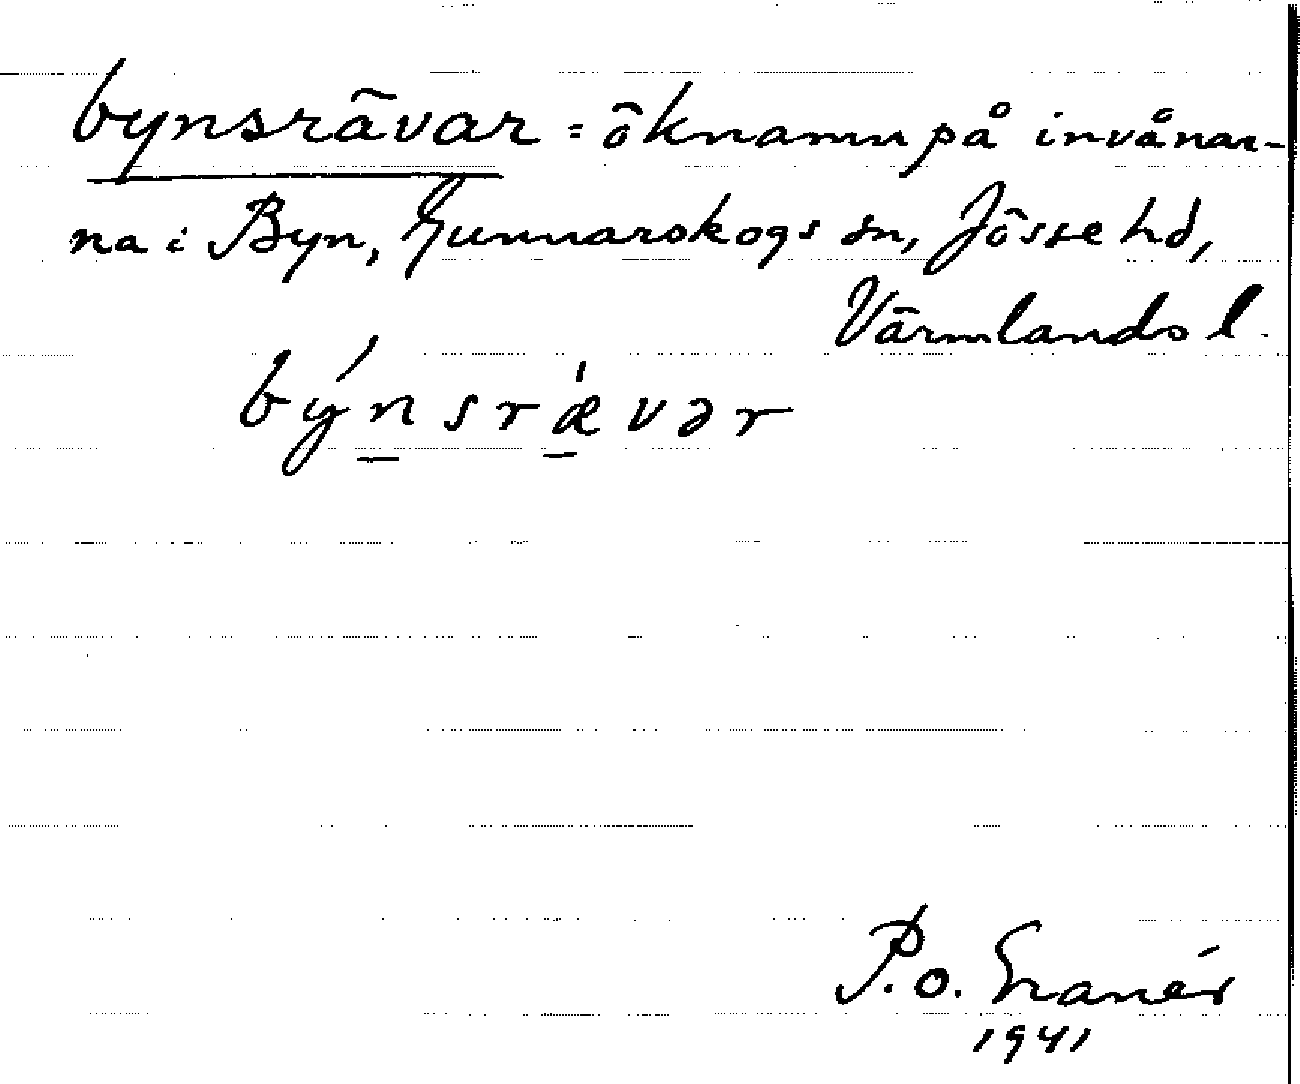 bynsrävar = öknamn på invånar-
na i Byn, Gunnarskogs sn, Jösse hd,
Värmlands l.
býnsræ̀vər
P.o. Granér
1941